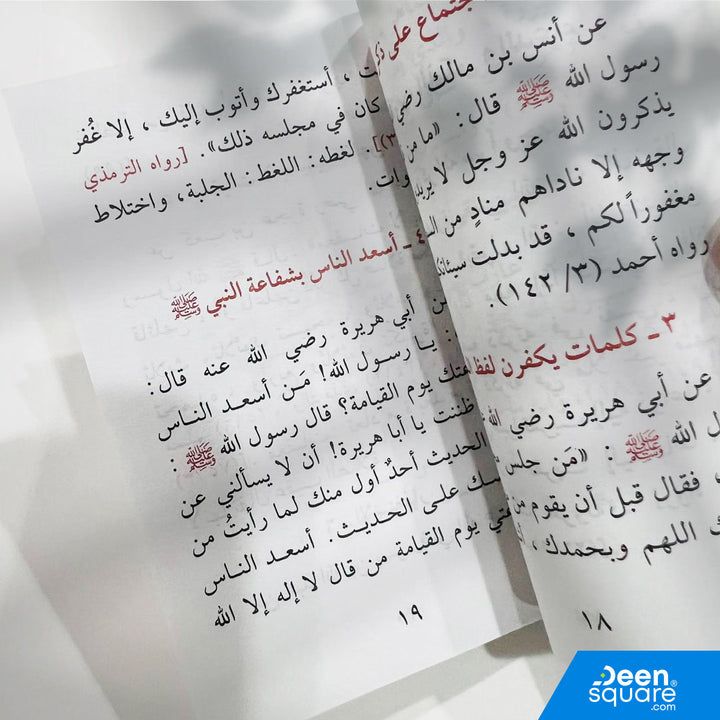 جتماع على ذكر
عن أنس بن مالك رضي
رسول الله ﷺ قال: «ما من
يذكرون الله عز وجل لا يريد
وجهه إلا ناداهم منادٍ من الس
مغفوراً لكم ، قد بدلت سيئاتك
رواه أحمد (٣/ ١٤٢).
٣ ـ كلمات يكفرن لفظ
عن أبي هريرة رضي الله
ل الله ﷺ : «مَن جلس
، فقال قبل أن يقوم من
ك اللهم وبحمدك ،
١٨
ت ، أستغفرك وأتوب إليك ، إلا غُفر
كان في مجلسه ذلك». [رواه الترمذي
٣)]. لغطه: اللغط: الجلبة، واختلاط
وات.
٤ ـ أسعد الناس بشفاعة النبي ﷺ
عن أبي هريرة رضي الله عنه قال:
: يا رسول الله! مَن أسعد الناس
عتك يوم القيامة؟ قال رسول الله ﷺ :
ظننت يا أبا هريرة! أن لا يسألني عن
الحديث أحدٌ أول منك لما رأيتُ من
سك على الحديث. أسعد الناس
تي يوم القيامة من قال لا إله إلا الله
١٩
Deen
square®
.com